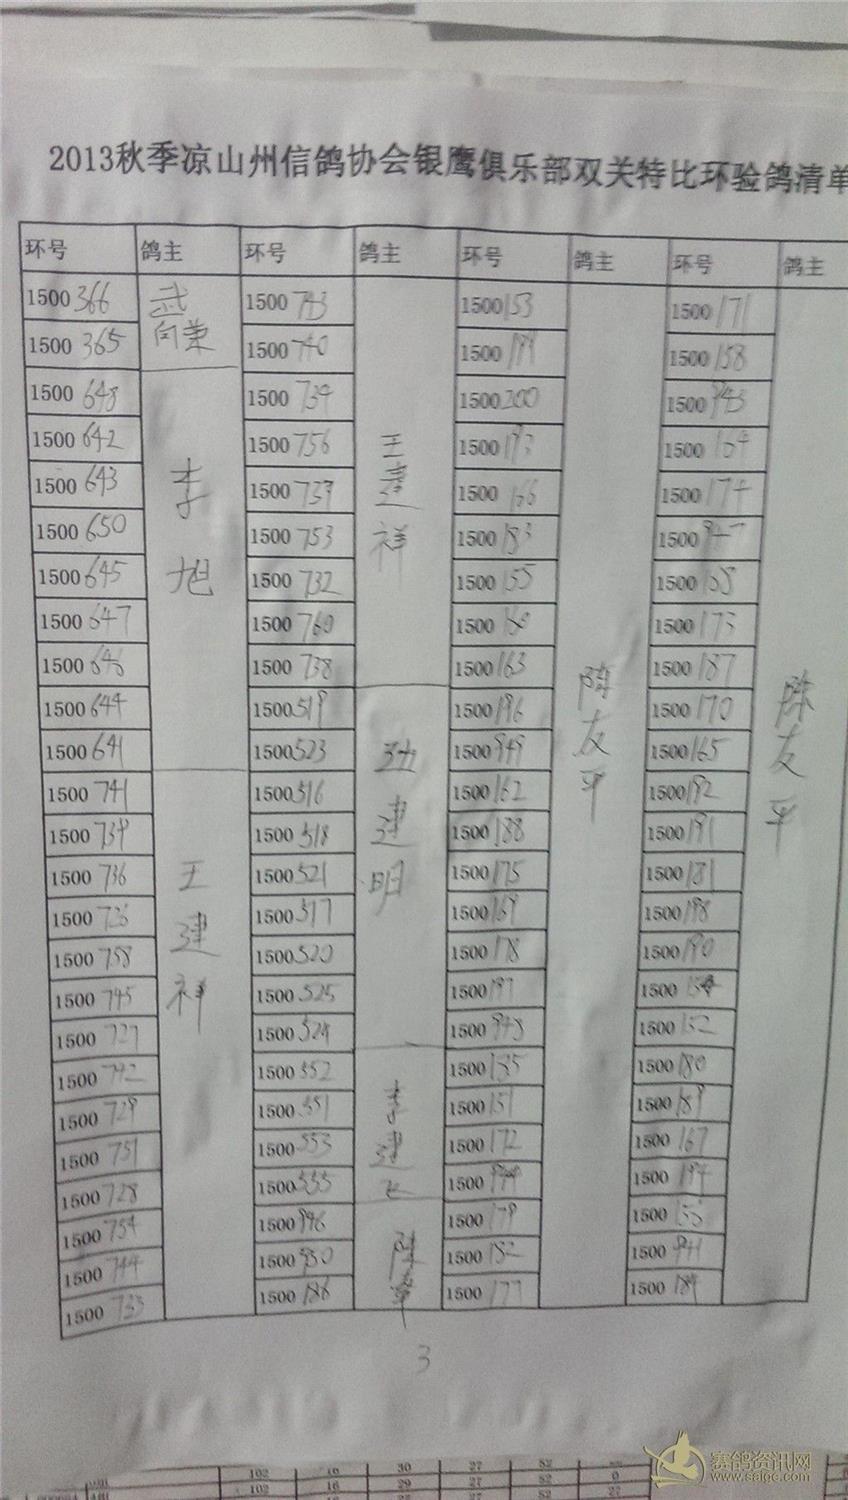 2013秋季凉山州信鸽协会银鹰俱乐部双关特比环验鸽清单
环号 鸽主 环号 鸽主 环号 鸽主 环号 鸽主
1500 366 武向荣 1500 743 1500 153 1500 171
1500 365 1500 740 1500 199 1500 158
1500 648 李旭 1500 734 王建祥 1500 200 陈友平 1500 943 陈友平
1500 642 1500 756 1500 193 1500 164
1500 643 1500 739 1500 166 1500 174
1500 650 1500 753 1500 183 1500 947
1500 645 1500 732 1500 155 1500 168
1500 647 1500 760 1500 1500 173
1500 646 1500 738 1500 163 1500 187
1500 644 1500 519 建明 1500 196 1500 170
1500 641 1500 523 1500 949 1500 165
1500 741 王建祥 1500 516 1500 162 1500 192
1500 739 1500 518 1500 188 1500 191
1500 736 1500 521 1500 175 1500 181
1500 726 1500 517 1500 169 1500 198
1500 758 1500 520 1500 178 1500 190
1500 745 1500 525 1500 197 1500
1500 727 1500 524 1500 948 1500 152
1500 742 1500 552 李建飞 1500 185 1500 180
1500 729 1500 551 1500 151 1500 189
1500 751 1500 553 1500 172 1500 167
1500 728 1500 555 1500 944 1500 194
1500 754 1500 946 1500 179 1500
1500 744 1500 950 1500 182 1500 941
1500 733 1500 186 1500 177 1500 184
3
赛鸽资讯网
www.saigc.com
102 16 30 27 52
102 16 29 27 52 0
27 52 27